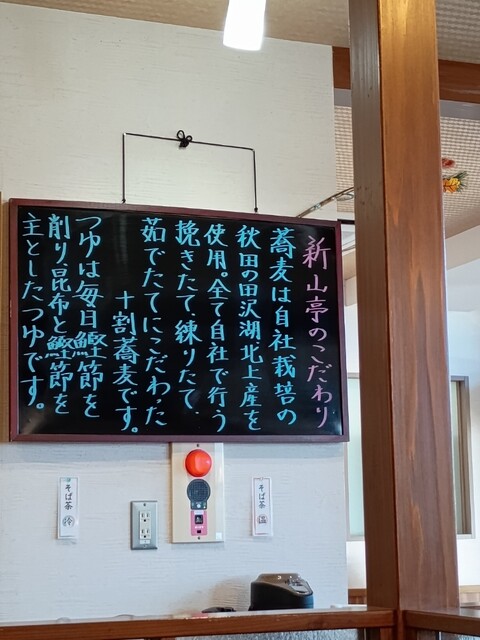 新山亭のこだわり
蕎麦は自社栽培の
秋田の田沢湖北上産を
使用。全て自社で行う
挽きたて、練りたて、
茹でたてにこだわった
十割蕎麦です。
つゆは毎日鰹節を
削り昆布と鰹節を
主としたつゆです。
そば茶 冷
そば茶 温